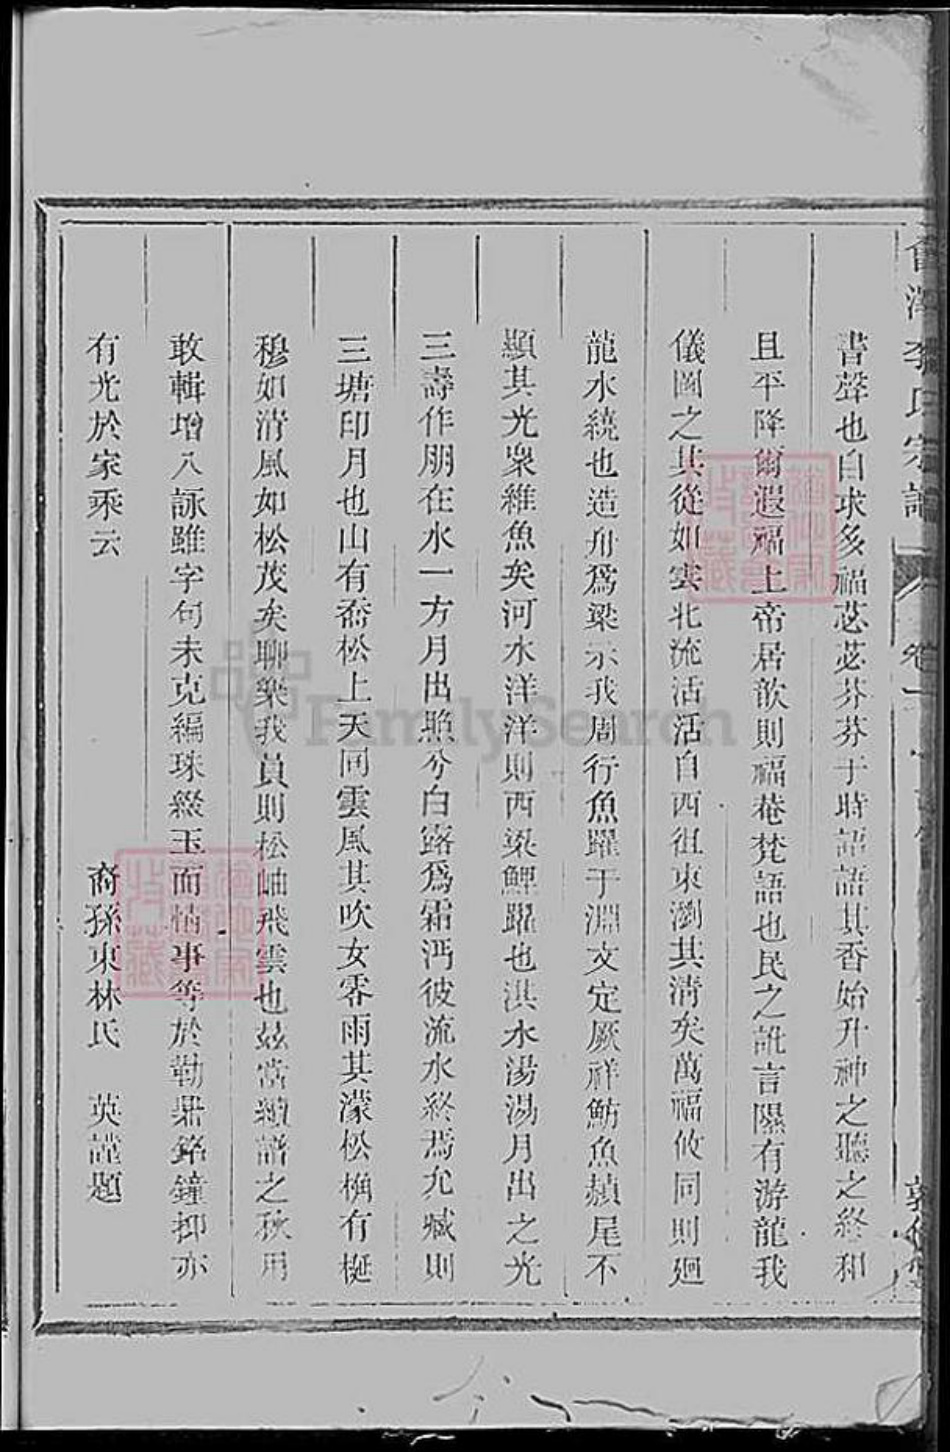 書聲也自求多福苾苾芬芬于時語語其香始升神之聽之終和
且平降爾遐福上帝居歆則福菴梵語也民之訛言隰有游龍我
儀圖之其從如雲北流活活自西徂東瀏其清矣萬福攸同則廻
龍水繞也造舟爲梁示我周行魚躍于淵文定厥祥魴魚赬尾不
顯其光衆維魚矣河水洋洋則西梁鯉躍也淇水湯湯月出之光
三壽作朋在水一方月出照兮白露爲霜沔彼流水終焉允臧則
三塘印月也山有喬松上天同雲風其吹女零雨其濛松桷有梴
穆如清風如松茂矣聊樂我員則松岫飛雲也茲當續譜之秋用
敢輯增入詠雖字句未克編珠綴玉而情事等於勒鼎銘鐘抑亦
有光於家乘云
裔孫東林氏 英謹題
李氏宗譜
卷一
FamilySearch